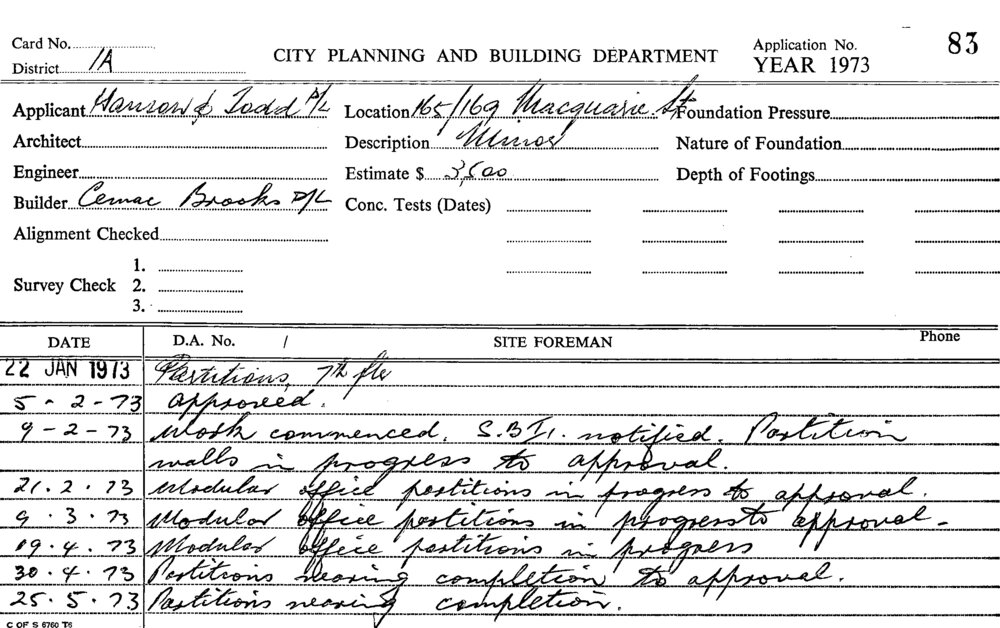 Card No.
District 1A
CITY PLANNING AND BUILDING DEPARTMENT
Application No. 83
YEAR 1973
Applicant & Todd P/L
Location 165/169 Macquarie St
Foundation Pressure
Architect
Description Minor
Nature of Foundation
Engineer
Estimate $ 3,500
Depth of Footings
Builder Cemac Brooks P/L
Conc. Tests (Dates)
Alignment Checked
Survey Check 1.
2.
3.
DATE D.A. No. / SITE FOREMAN Phone
22 JAN 1973 Partitions, 7th flr
5-2-73 approved.
9-2-73 Work commenced. notified. Partition
walls in progress to approval.
21.2.73 Modular office partitions in progress to approval.
9.3.73 Modular office partitions in progress to approval-
19.4.73 Modular office partitions in progress
30.4.73 Partitions nearing completion to approval.
25.5.73 Partitions nearing completion.
C OF S 6760 T6